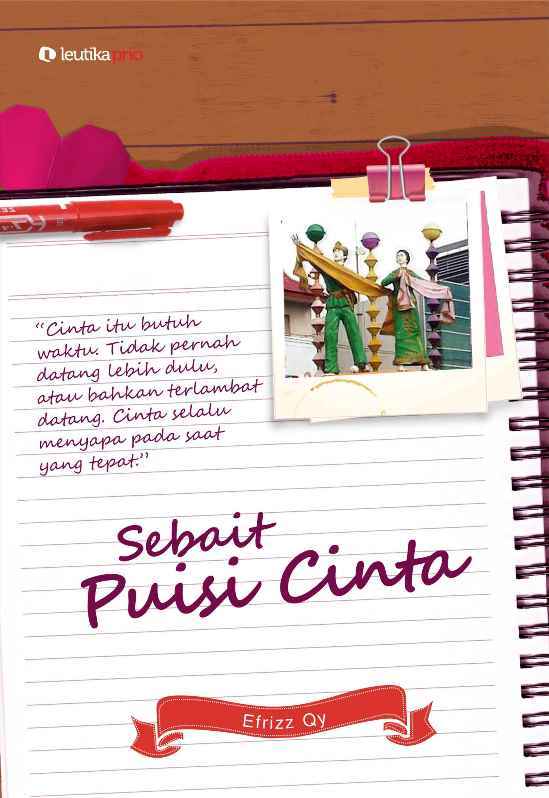 leutikaprio
“Cinta itu butuh
waktu. Tidak pernah
datang lebih dulu,
atau bahkan terlambat
datang. Cinta selalu
menyapa pada saat
yang tepat.”
Sebait
Puisi Cinta
Efrizz Qy